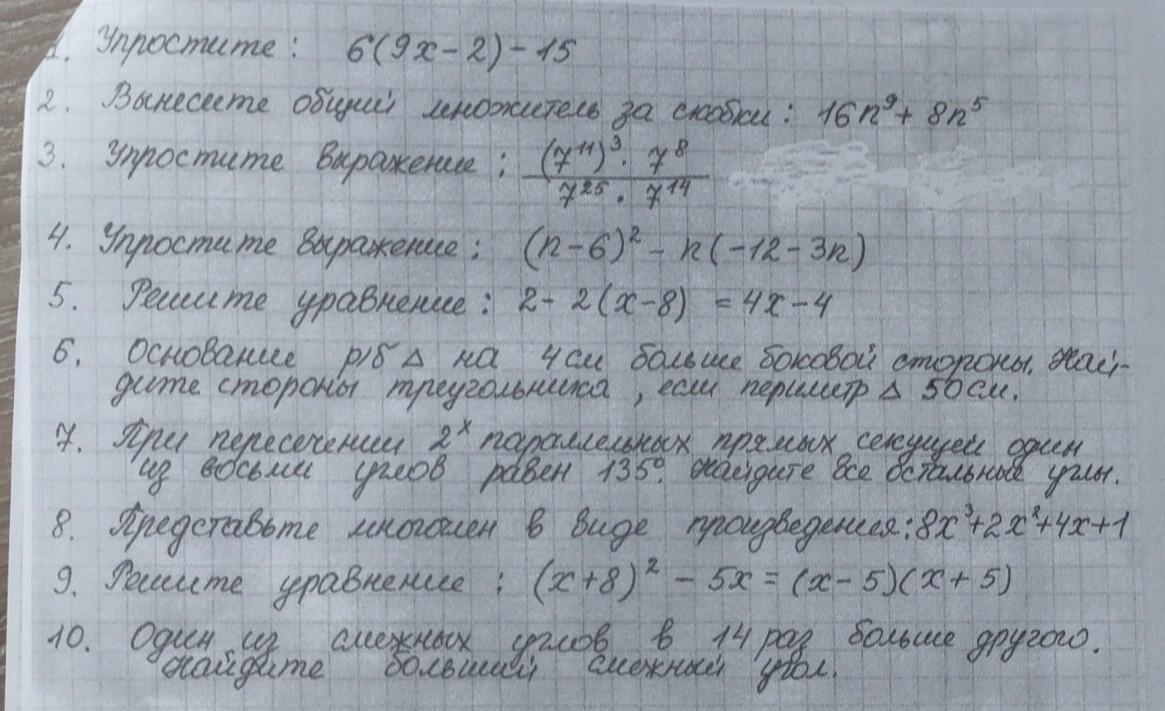 1. Упростите: 6(9x-2)-15
2. Вынесите общий множитель за скобки: 16n⁹+8n⁵
3. Упростите выражение: (7¹¹)³·7⁸ / 7²⁵·7¹⁴
4. Упростите выражение: (n-6)²-n(-12-3n)
5. Решите уравнение: 2-2(x-8)=4x-4
6. Основание р/б △ на 4см больше боковой стороны. Най-
дите стороны треугольника, если периметр △ 50см.
7. При пересечении 2ˣ параллельных прямых секущей один
из восьми углов равен 135°. Найдите все остальные углы.
8. Представьте многочлен в виде произведения: 8x³+2x²+4x+1
9. Решите уравнение: (x+8)²-5x=(x-5)(x+5)
10. Один из смежных углов в 14 раз больше другого.
Найдите больший смежный угол.